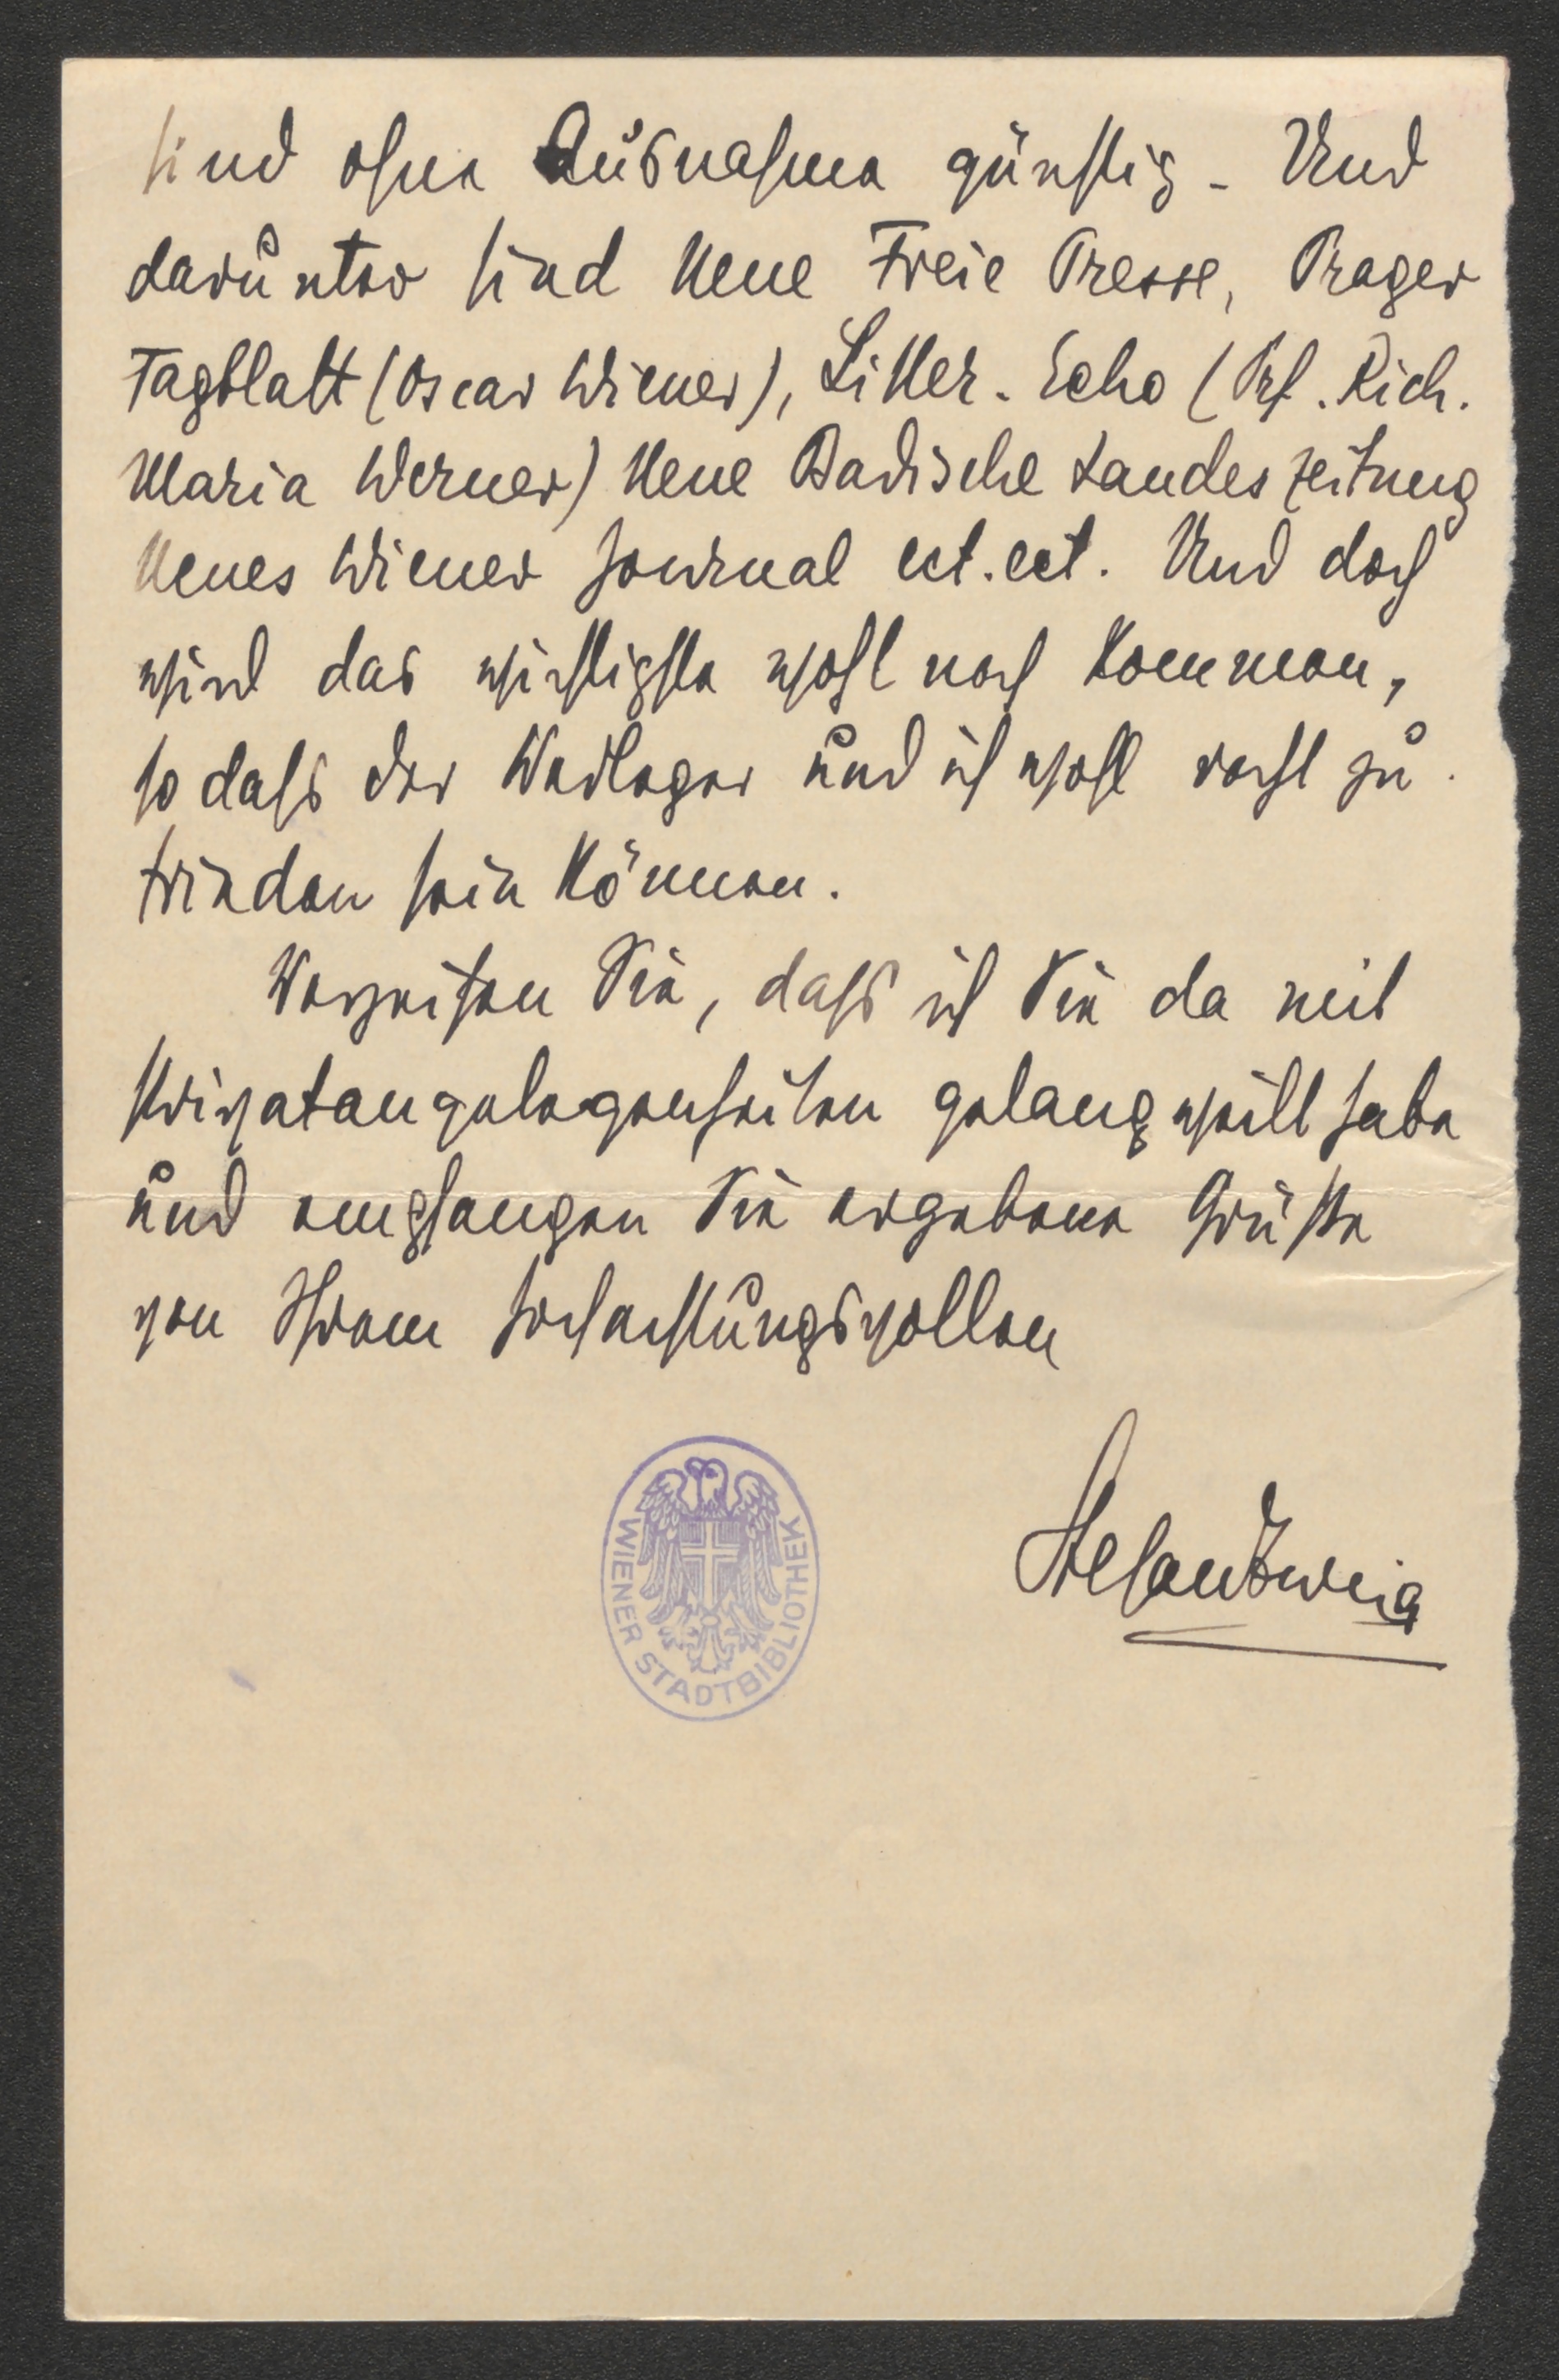 sind ohne Ausnahme günstig - Und
darunter sind Neue Freie Presse, Prager
Tagblatt (Oscar Wiener), Litter. Echo (Prf. Rich.
Maria Werner) Neue Badische Landeszeitung
Neues Wiener Journal ect. ect. Und doch
wird das wichtigste wohl noch kommen,
so dass der Verleger und ich wohl recht zu-
frieden sein können.
Verzeihen Sie, dass ich Sie da mit
Privatangelegenheiten gelangweilt habe
und empfangen Sie ergebene Grüsse
von Ihrem hochachtungsvollen
Stefan Zweig
WIENER STADTBIBLIOTHEK